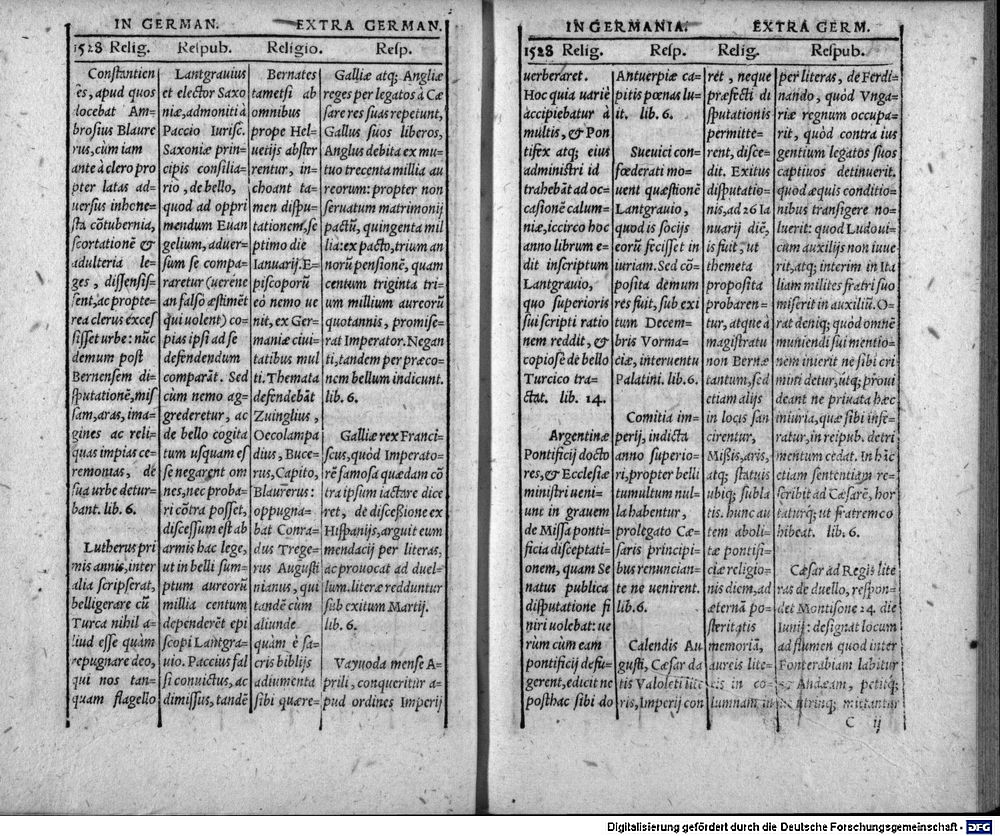 IN GERMAN. EXTRA GERMAN.
1528 Relig. Respub. Religio. Resp.
Constantien
es, apud quos
docebat Am-
brosius Blaure
rus, cum iam
ante à clero pro
pter latas ad-
uersus inhone-
sta cōtubernia,
scortationē &
adulteria le-
ges, dissensis-
sent, ac propte-
rea clerus exces
sisset urbe: nūc
demum post
Bernensem di-
sputationē, mis
sam, aras, ima-
gines ac reli-
quas impias ce-
remonias, de
sua urbe detur-
bant. lib. 6.
Lutherus pri
mis annis, inter
alia scripserat,
belligerare cū
Turca nihil a-
liud esse quàm
repugnare deo,
qui nos tan-
quam flagello
Lantgrauius
et elector Saxo
niæ, admoniti à
Paccio Iurisc.
Saxoniæ prin-
cipis consilia-
rio, de bello,
quod ad oppri
mendum Euan
gelium, aduer-
sum se compa-
raretur (uerene
an falsò æstimēt
qui uolent) co-
pias ipsi ad se
defendendum
comparāt. Sed
cùm nemo ag-
grederetur, ac
de bello cogita
tum usquam es
se negarent om
nes, nec proba-
ri cōtra posset,
discessum est ab
armis hac lege,
ut in belli sum-
ptum aureorū
millia centum
dependerēt epi
scopi Lantgra-
uio. Paccius fal
si conuictus, ac
dimissus, tandē
Bernates
tametsi ab
omnibus
prope Hel-
uetijs abster
rentur, in-
choant ta-
men dispu-
tationem, se
ptimo die
Ianuarij. E-
piscoporū
eò nemo ue
nit, ex Ger-
maniæ ciui-
tatibus mul
ti. Themata
defendebāt
Zuinglius,
Oecolampa
dius, Buce-
rus, Capito,
Blaurerus:
oppugna-
bat Conra-
dus Trege-
rus Augusti
nianus, qui
tandē cùm
aliunde
quàm è sa-
cris biblijs
adiumenta
sibi quære-
Galliæ atq; Angliæ
reges per legatos à Cæ
sare res suas repetunt,
Gallus suos liberos,
Anglus debita ex mu-
tuo trecenta millia au
reorum: propter non
seruatum matrimonij
pactū, quingenta mil
lia: ex pacto, trium an
norū pensionē, quam
centum triginta tri-
um millium aureorū
quotannis, promise-
rat Imperator. Negan
ti, tandem per præco-
nem bellum indicunt.
lib. 6.
Galliæ rex Franci-
scus, quòd Imperato-
rē famosa quædam cō
tra ipsum iactare dice
ret, de discessione ex
Hispanijs, arguit eum
mendacij per literas,
ac prouocat ad duel-
lum. literæ redduntur
sub exitum Martij.
lib. 6.
Vayuoda mense A-
prili, conqueritur a-
pud ordines Imperij
IN GERMANIA. EXTRA GERM.
1528 Relig. Resp. Relig. Respub.
uerberaret.
Hoc quia uariè
accipiebatur à
multis, & Pon
tifex atq; eius
administri id
trahebāt ad oc-
casionē calum-
niæ, iccirco hoc
anno librum e-
dit inscriptum
Lantgrauio,
quo superioris
sui scripti ratio
nem reddit, &
copiosè de bello
Turcico tra-
ctat. lib. 14.
Argentinæ
Pontificij docto
res, & Ecclesiæ
ministri ueni-
unt in grauem
de Missa ponti-
ficia disceptati-
onem, quam Se
natus publica
disputatione fi
niri uolebat: ue
rùm cùm eam
pontificij defu-
gerent, edicit ne
posthac sibi do
Antuerpiæ ca-
pitis pœnas lu-
it. lib. 6.
Sueuici con-
fœderati mo-
uent quæstionē
Lantgrauio,
quod is socijs
eorū fecisset in
iuriam. Sed cō-
posita demum
res fuit, sub exi
tum Decem-
bris Vorma-
ciæ, interuentu
Palatini. lib. 6.
Comitia im-
perij, indicta
anno superio-
ri, propter belli
tumultum nul-
la habentur,
prolegato Cæ-
saris principi-
bus renuncian-
te ne uenirent.
lib. 6.
Calendis Au
gusti, Cæsar da
tis Valoleti lite
ris, Imperij con
ret, neque
præfecti di
sputationis
permitte-
rent, disce-
dit. Exitus
disputatio-
nis, ad 26 Ia
nuarij diē,
is fuit, ut
themeta
proposita
probaren-
tur, atque à
magistratu
non Bernæ
tantum, sed
etiam alijs
in locis san
cirentur,
Missis, aris,
atq; statuis
ubiq; subla
tis. hunc au
tem aboli-
tæ pontifi-
ciæ religio-
nis diem, ad
æternā po-
steritatis
memoriā,
aureis lite-
ris in co-
lumnam in
per literas, de Ferdi-
nando, quòd Vnga-
riæ regnum occupa-
rit, quòd contra ius
gentium legatos suos
captiuos detinuerit.
quod æquis conditio-
nibus transigere no-
luerit: quod Ludoui-
cum auxilijs non iuue
rit, atq; interim in Ita
liam milites fratri suo
miserit in auxiliū. O-
rat deniq; quòd omnē
muniendi sui mentio-
nem inierit ne sibi cri
mini detur, utq; proui
deant ne priuata hæc
iniuria, quæ sibi infe-
ratur, in reipub. detri
mentum cedat. In hāc
etiam sententiam re-
scribit ad Cæsarē, hor
taturq; ut fratrem co
hibeat. lib. 6.
Cæsar ad Regis lite
ras de duello, respon-
det Montisone 24. die
Iunij: designat locum
ad flumen quod inter
Fonterabiam labitur
Andæam, petitq;
utrinq; mittantur
C ij
Digitalisierung gefördert durch die Deutsche Forschungsgemeinschaft - DFG